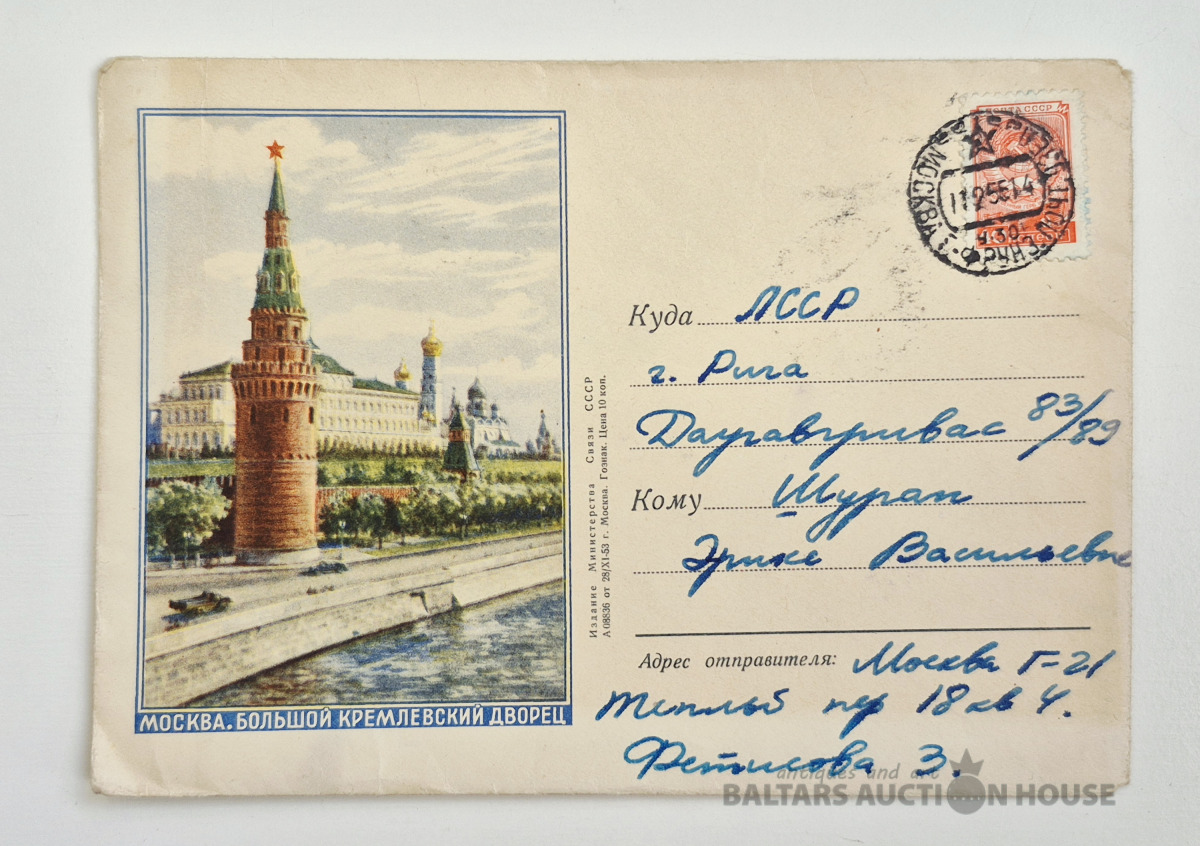 МОСКВА. БОЛЬШОЙ КРЕМЛЕВСКИЙ ДВОРЕЦ
Издание Министерства Связи СССР
А 08836 от 28/XI-53 г. Москва. Гознак. Цена 10 коп.
ПОЧТА СССР
МОСКВА
Куда ЛССР
г. Рига
Даугавгривас 83/89
Кому Шуран
Эрике Васильевне
Адрес отправителя: Москва Г-21
Теплый пер 18 кв 4.
Фетисова З.
antiques and art
BALTARS AUCTION HOUSE